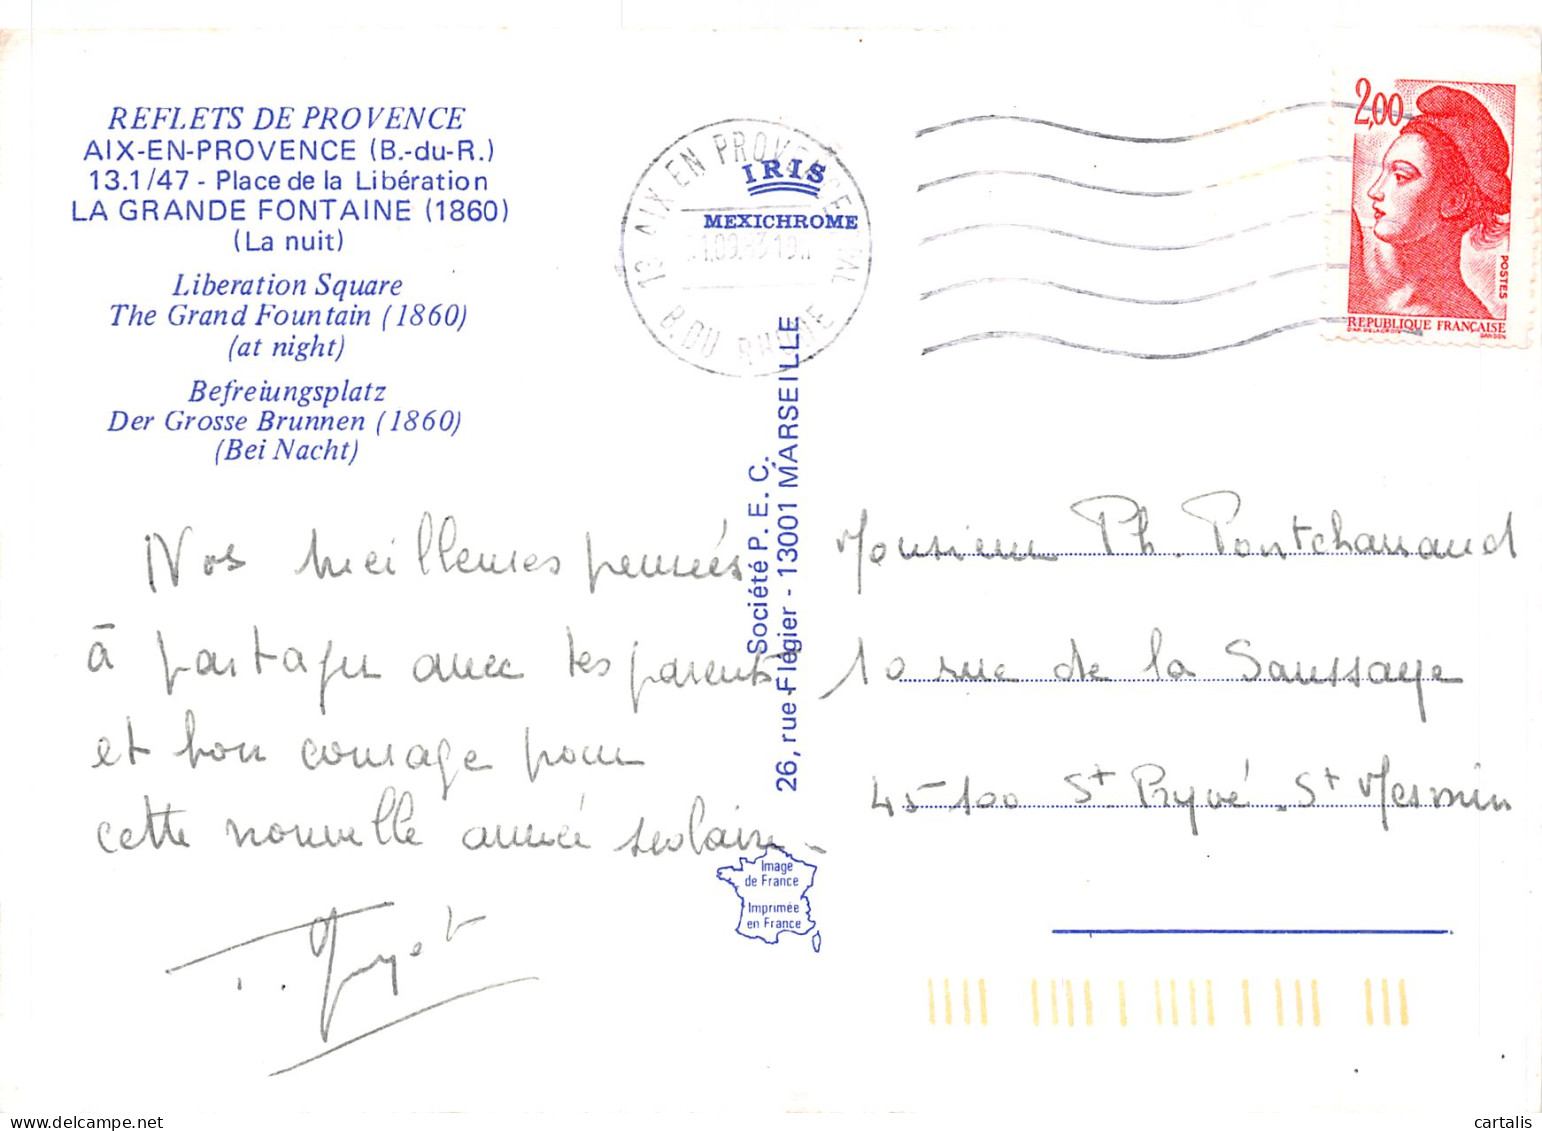 REFLETS DE PROVENCE
AIX-EN-PROVENCE (B.-du-R.)
13.1/47 - Place de la Libération
LA GRANDE FONTAINE (1860)
(La nuit)
Liberation Square
The Grand Fountain (1860)
(at night)
Befreiungsplatz
Der Grosse Brunnen (1860)
(Bei Nacht)
Nos meilleures pensées
à partager avec tes parents
et bon courage pour
cette nouvelle année scolaire.
13 AIX EN PROVENCE PAL
B. DU RHONE
IRIS
MEXICHROME
Société P. E. C.
26, rue Flégier - 13001 MARSEILLE
Image
de France
Imprimée
en France
2,00
POSTES
REPUBLIQUE FRANÇAISE
D'AP. DELACROIX GANDON
Monsieur Ph. Pontcharraud
10 rue de la Saussaye
45-100 St Pryvé-St Mesmin
cartalis